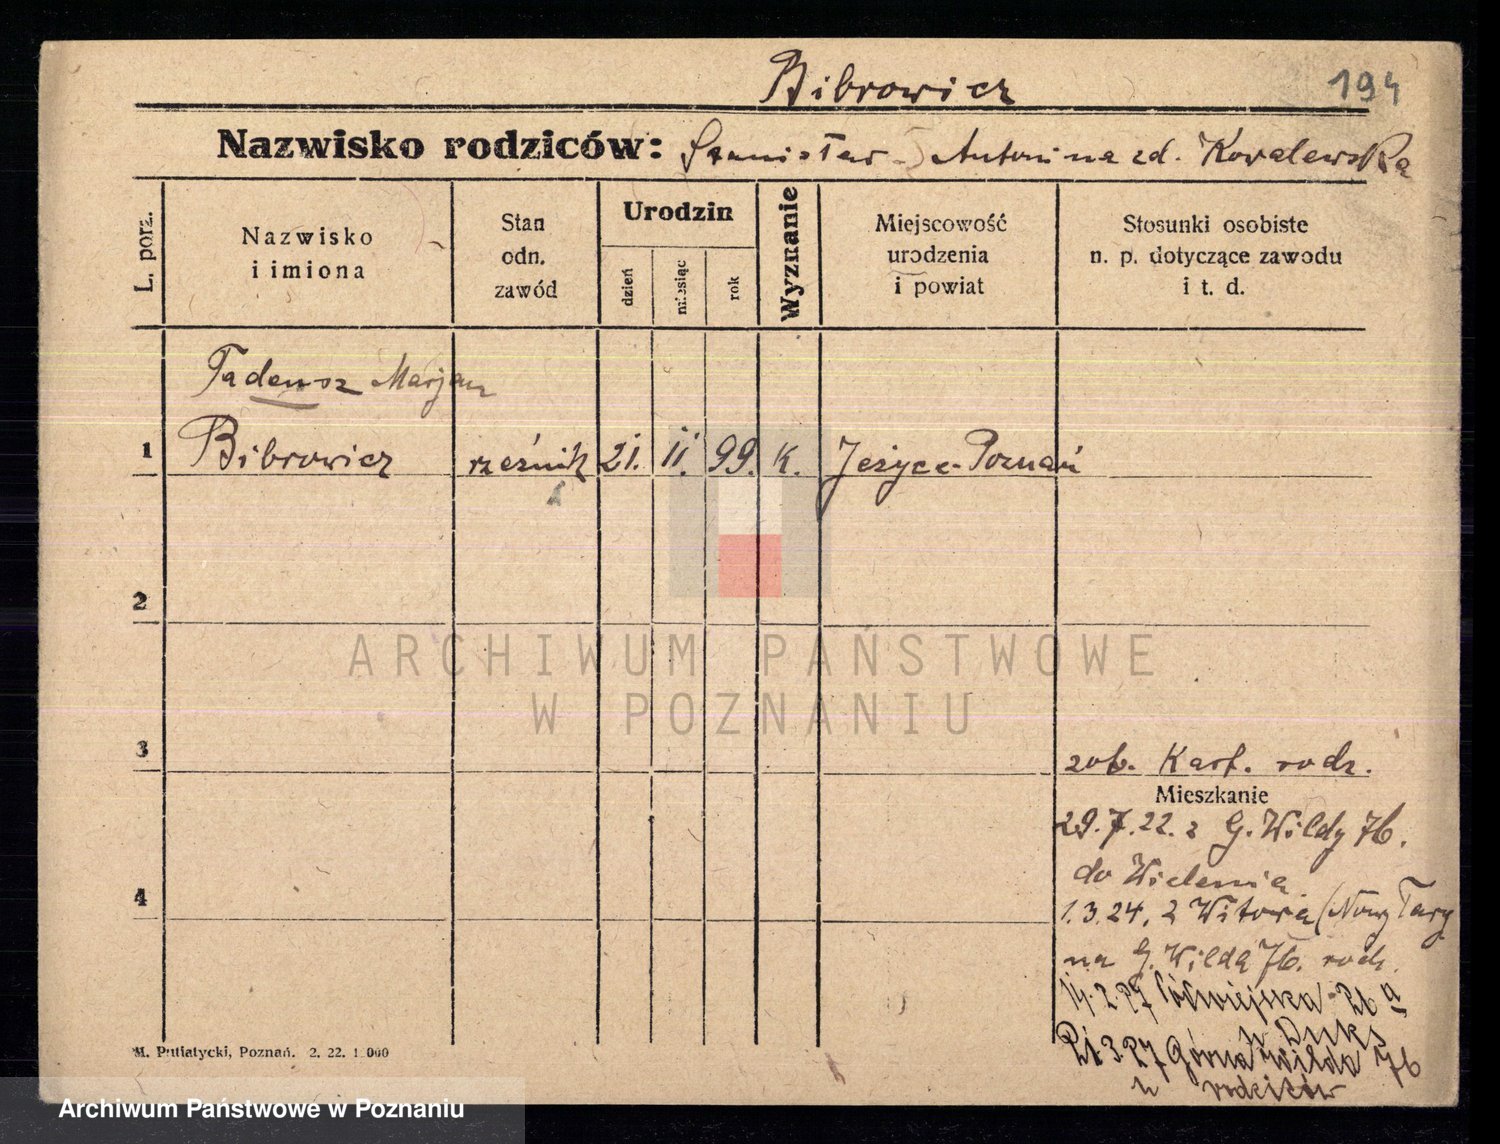 Bibrowicz 194
Nazwisko rodziców: Stanisław - Antonina zd. Kowalewska
L. porz.
Nazwisko
i imiona
Stan
odn.
zawód
Urodzin
dzień
miesiąc
rok
Wyznanie
Miejscowość
urodzenia
i powiat
Stosunki osobiste
n. p. dotyczące zawodu
i t. d.
Tadeusz Marjan
1 Bibrowicz rzeźnik 21. 11. 99. K. Jeżyce-Poznań
2
ARCHIWUM PAŃSTWOWE
W POZNANIU
3
zob. Kart. rodz.
Mieszkanie
29.7.22. z G. Wildy 76.
do Wielenia.
4
1.3.24, z Witowa (Nowy Targ
na G. Wildę 76. rodz.
Półwiejska 26 a
u Duks
21 3.27 Górna Wilda 76
u rodziców
M. Putiatycki, Poznań. 2. 22. 1.000
Archiwum Państwowe w Poznaniu